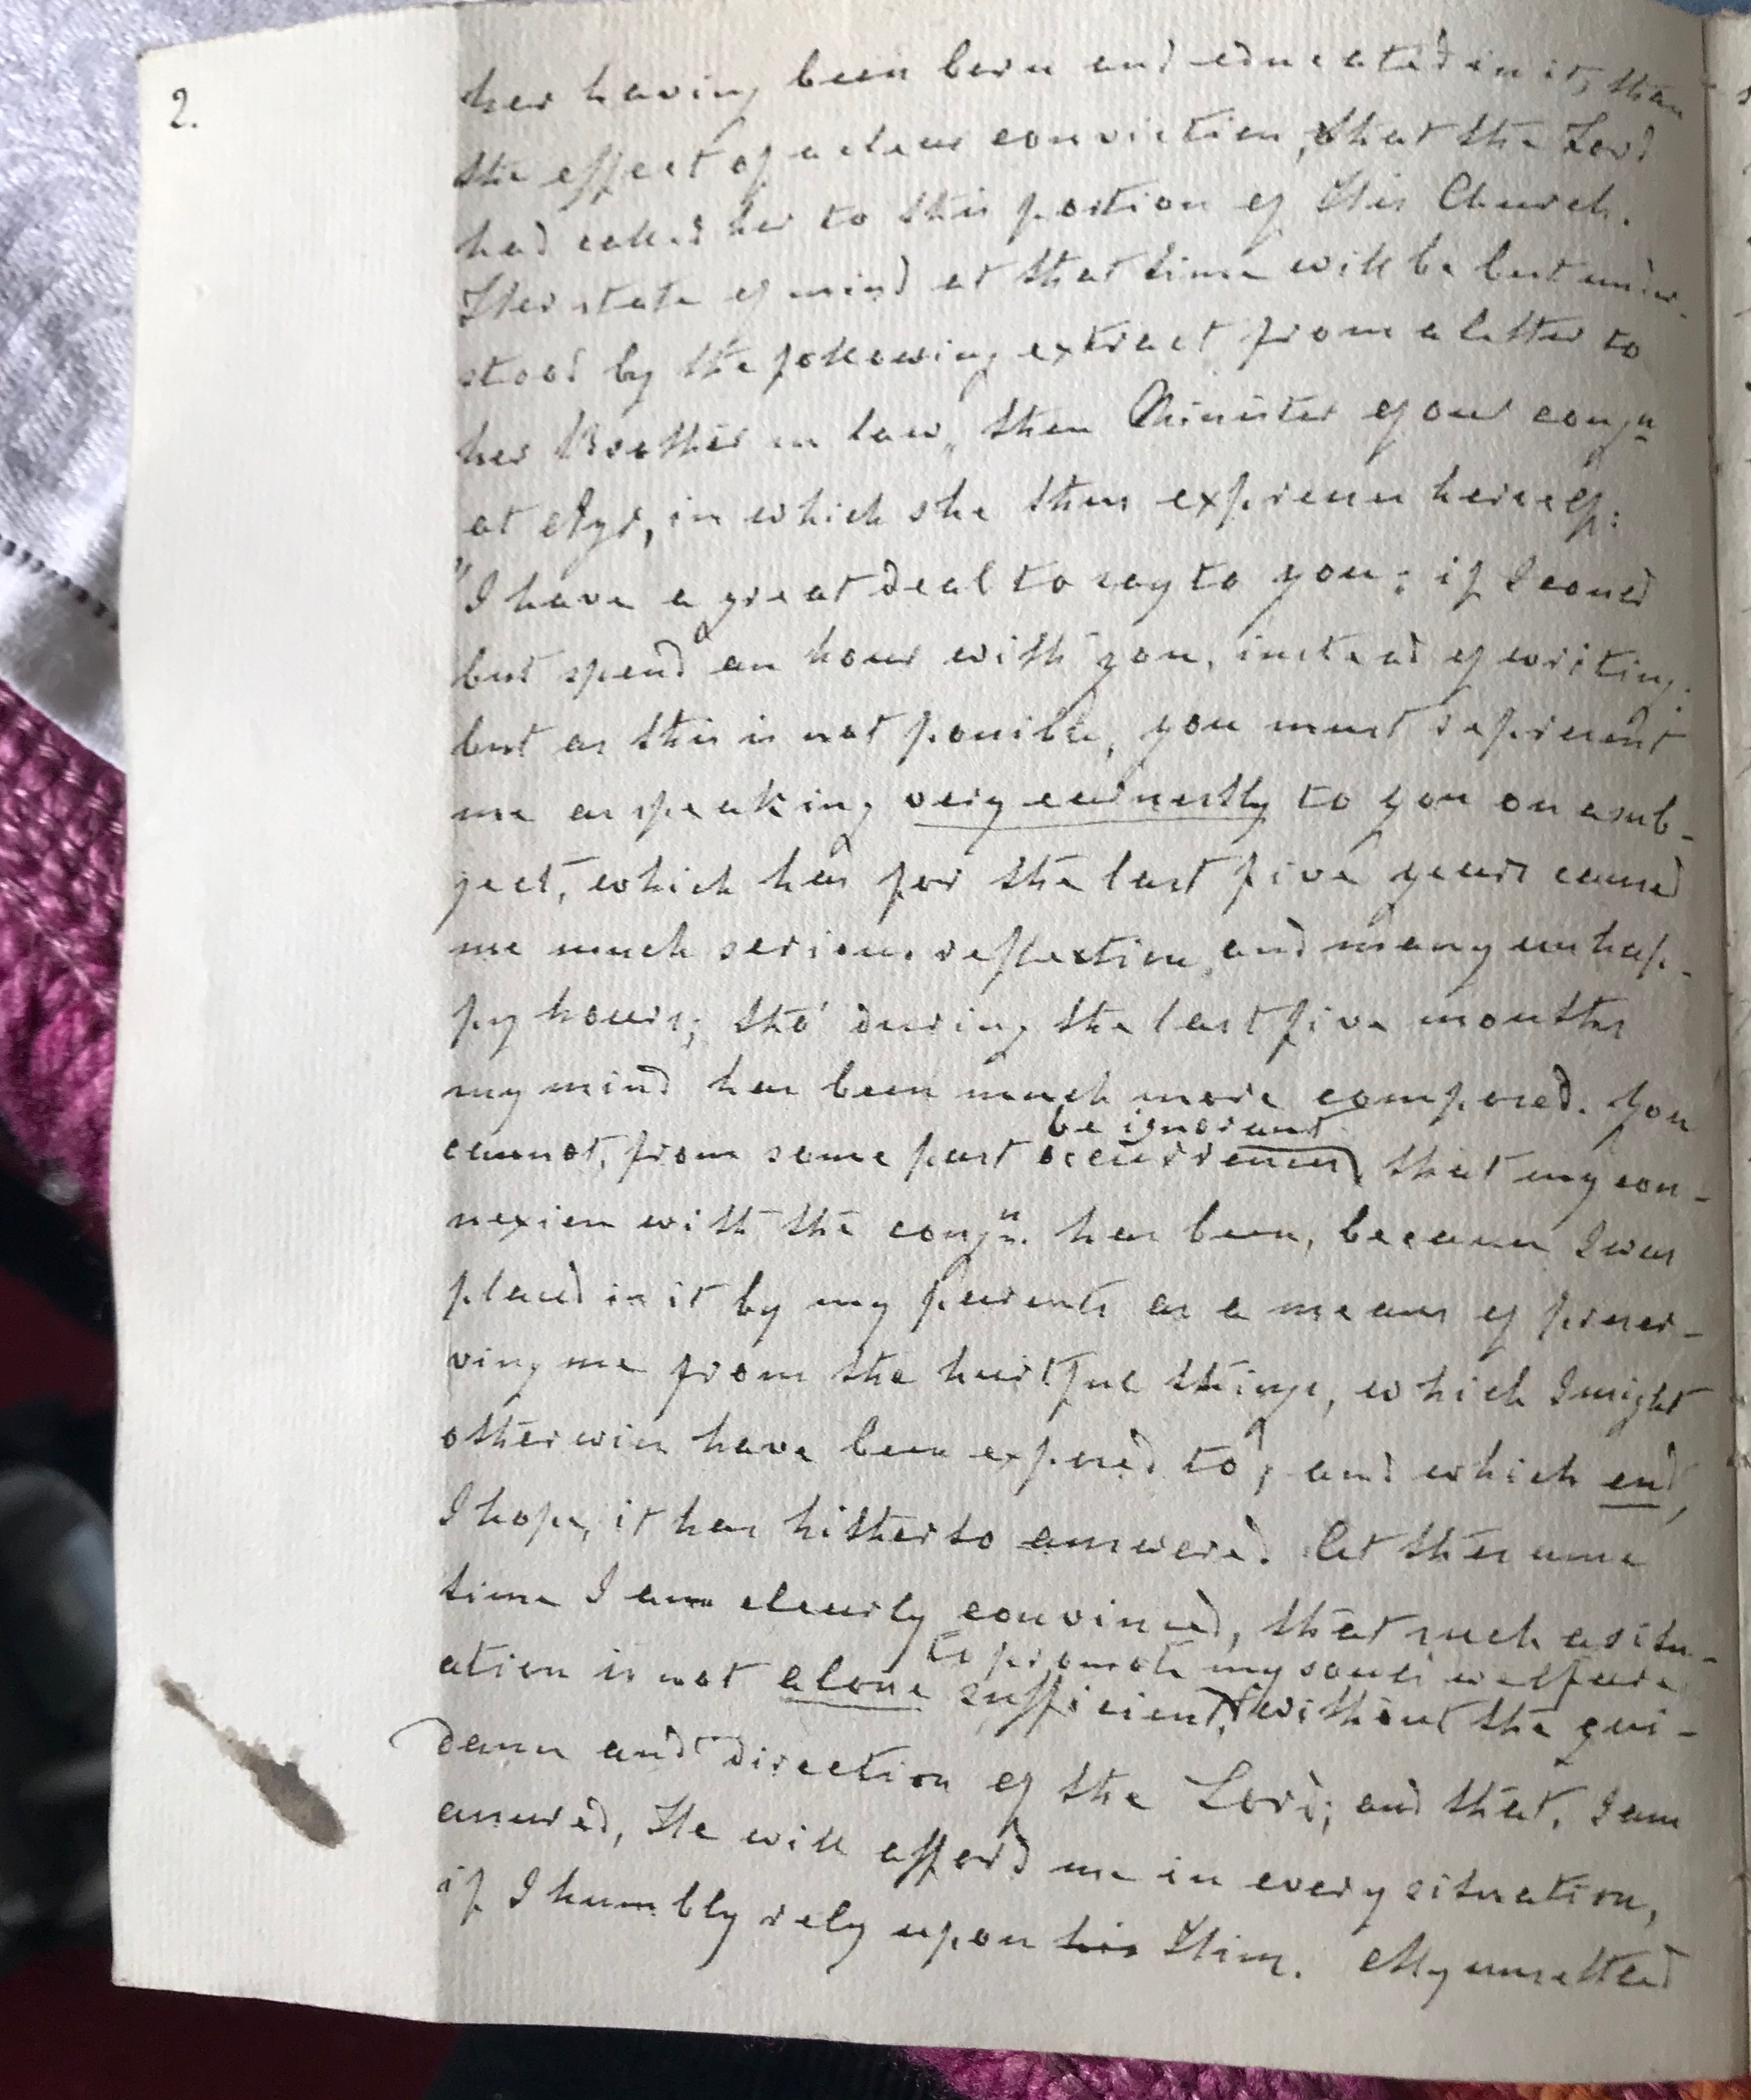 2.
her having been born and educated in it, than
the effect of a clear conviction, that the Lord
had called her to this portion of His Church.
Her state of mind at that time will be best under-
stood by the following extract from a letter to
her Brother in law, then Minister of our congn
at Ayr, in which she thus expresses herself:
"I have a great deal to say to you; if I could
but spend an hour with you, instead of writing.
but as this is not possible, you must represent
me as speaking very earnestly to you on a sub-
ject, which has for the last five years caused
me much serious reflection, and many unhap-
py hours; tho' during the last five months
my mind has been much more composed. You
be ignorant
cannot, from some past occurrences, that my con-
nexion with the congn. has been, because I was
placed in it by my parents as a means of preser-
ving me from the hurtful things, which I might
otherwise have been exposed to; and which end,
I hope, it has hitherto answered. At the same
time I am clearly convinced, that such a situ-
to promote my soul's welfare
ation is not alone sufficient, without the gui-
dance and direction of the Lord; and that, I am
assured, He will afford me in every situation,
if I humbly rely upon his Him. My unsettled